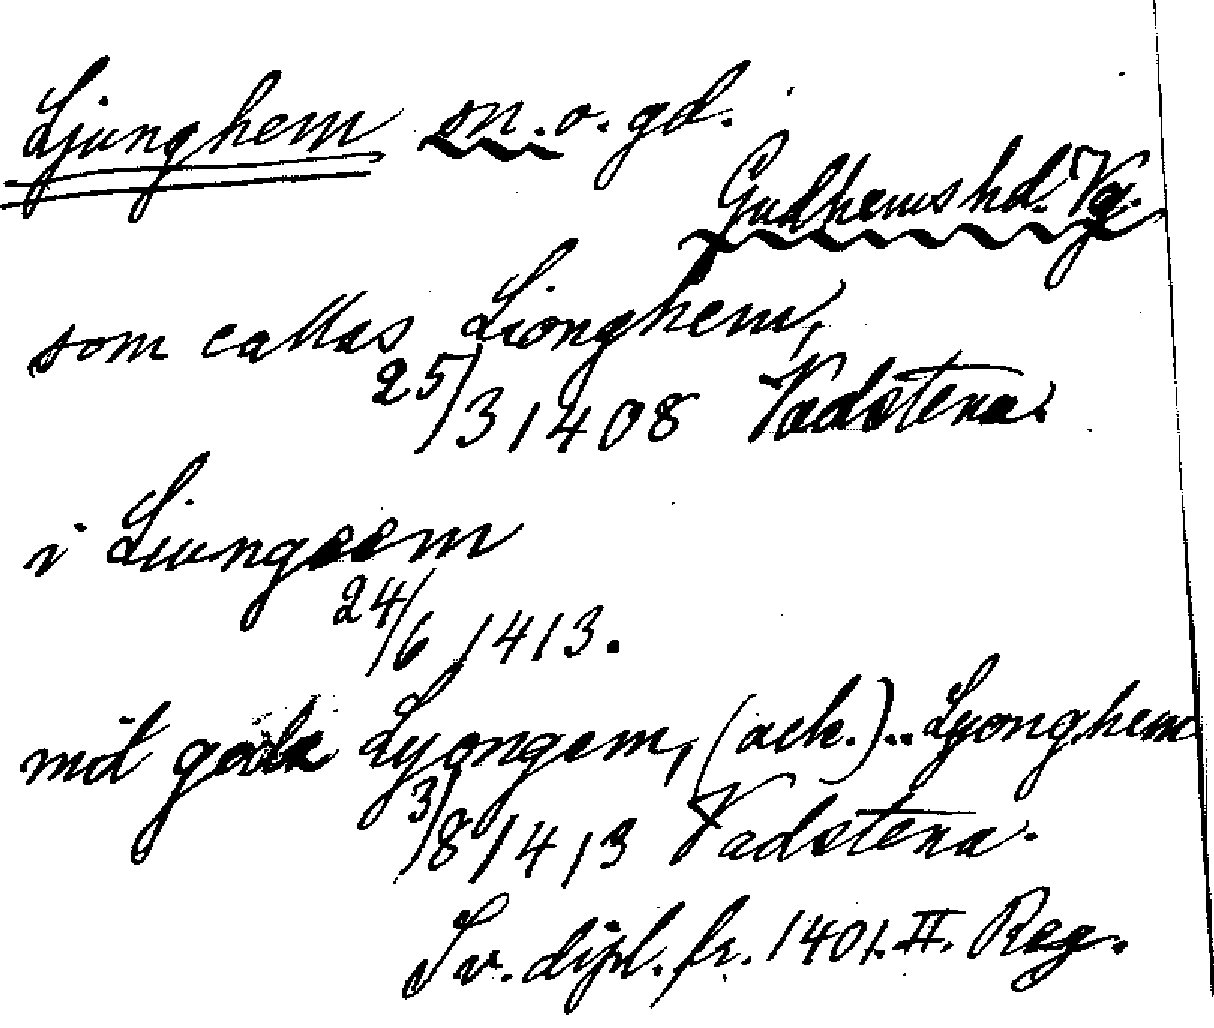 Ljunghem sn. o. gd.
Gudhems hd. Vg.
som callas Lionghem,
25/3 1408 Vadstena.
i Liungeem
24/6 1413.
mit goda Lyongem, (ack.).. Lyonghem
3/8 1413 Vadstena.
Sv. dipl. fr. 1401. II. Reg.